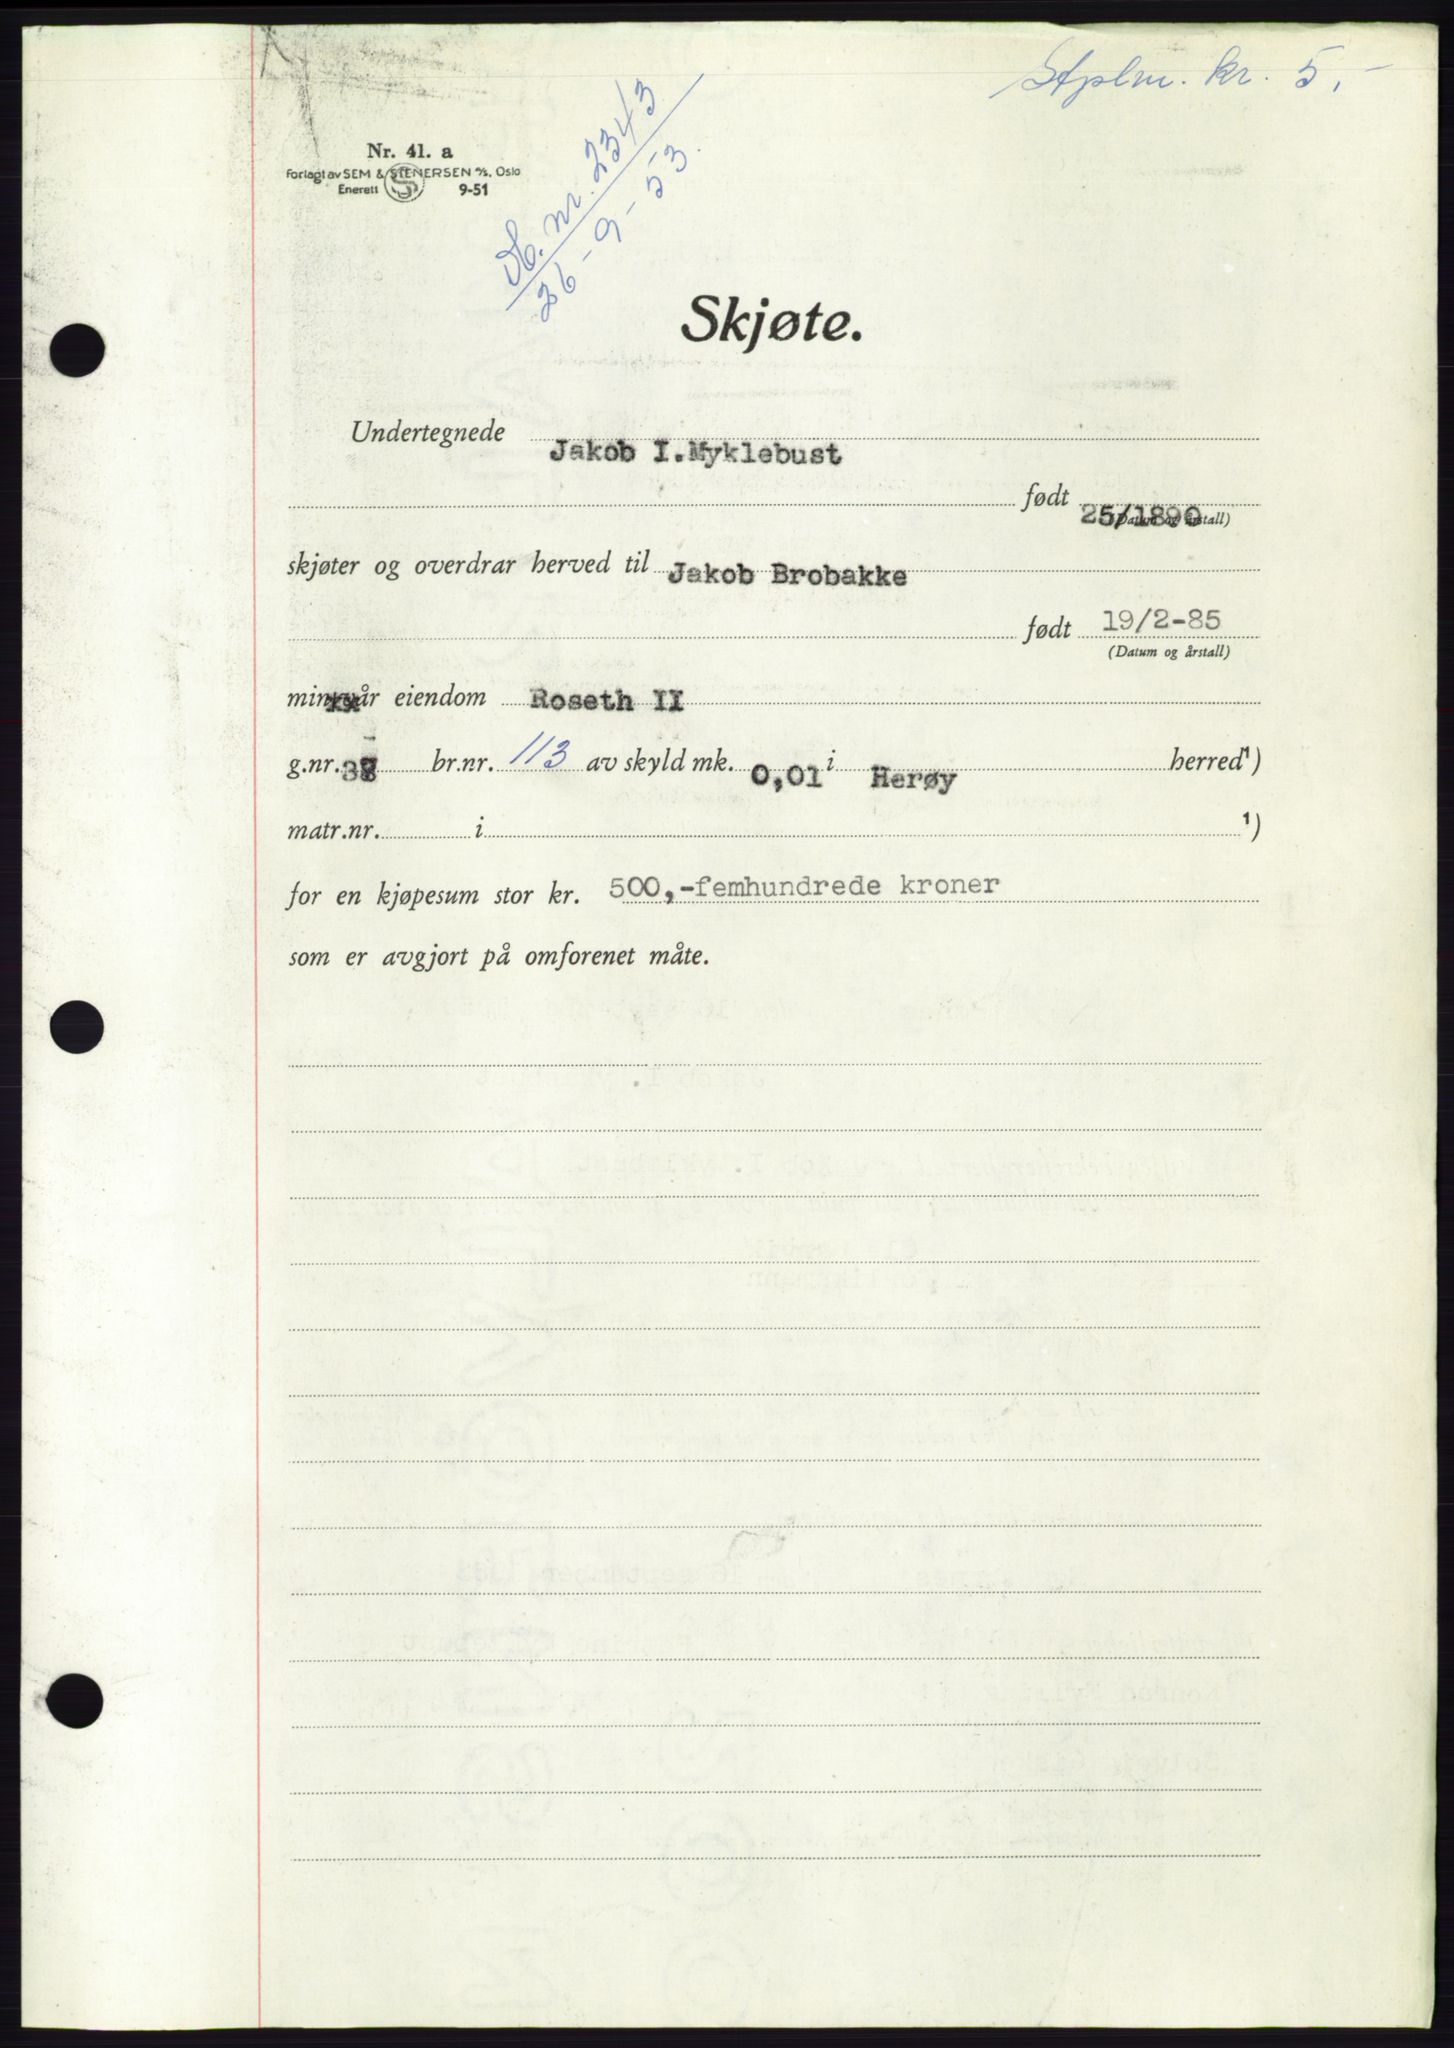 Stplm. kr. 5,-
Nr. 41. a
Forlagt av SEM & STENERSEN A/S, Oslo
Enerett S 9-51
Db. nr. 2343
26-9-53.
Skjøte.
Undertegnede Jakob I.Myklebust
født 25/1890
(Datum og årstall)
skjøter og overdrar herved til Jakob Brobakke
født 19/2-85
(Datum og årstall)
min xx vår eiendom Roseth II
g.nr. 37 br.nr. 113 av skyld mk. 0,01 i Herøy herred ¹)
matr.nr. i ¹)
for en kjøpesum stor kr. 500,-femhundrede kroner
som er avgjort på omforenet måte.